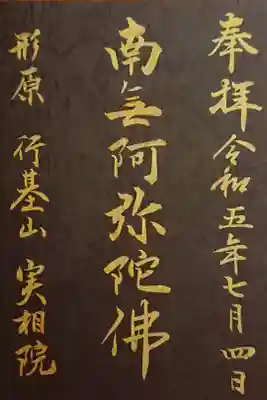 奉拝 令和五年七月四日
南无阿弥陀佛
形原 行基山 実相院